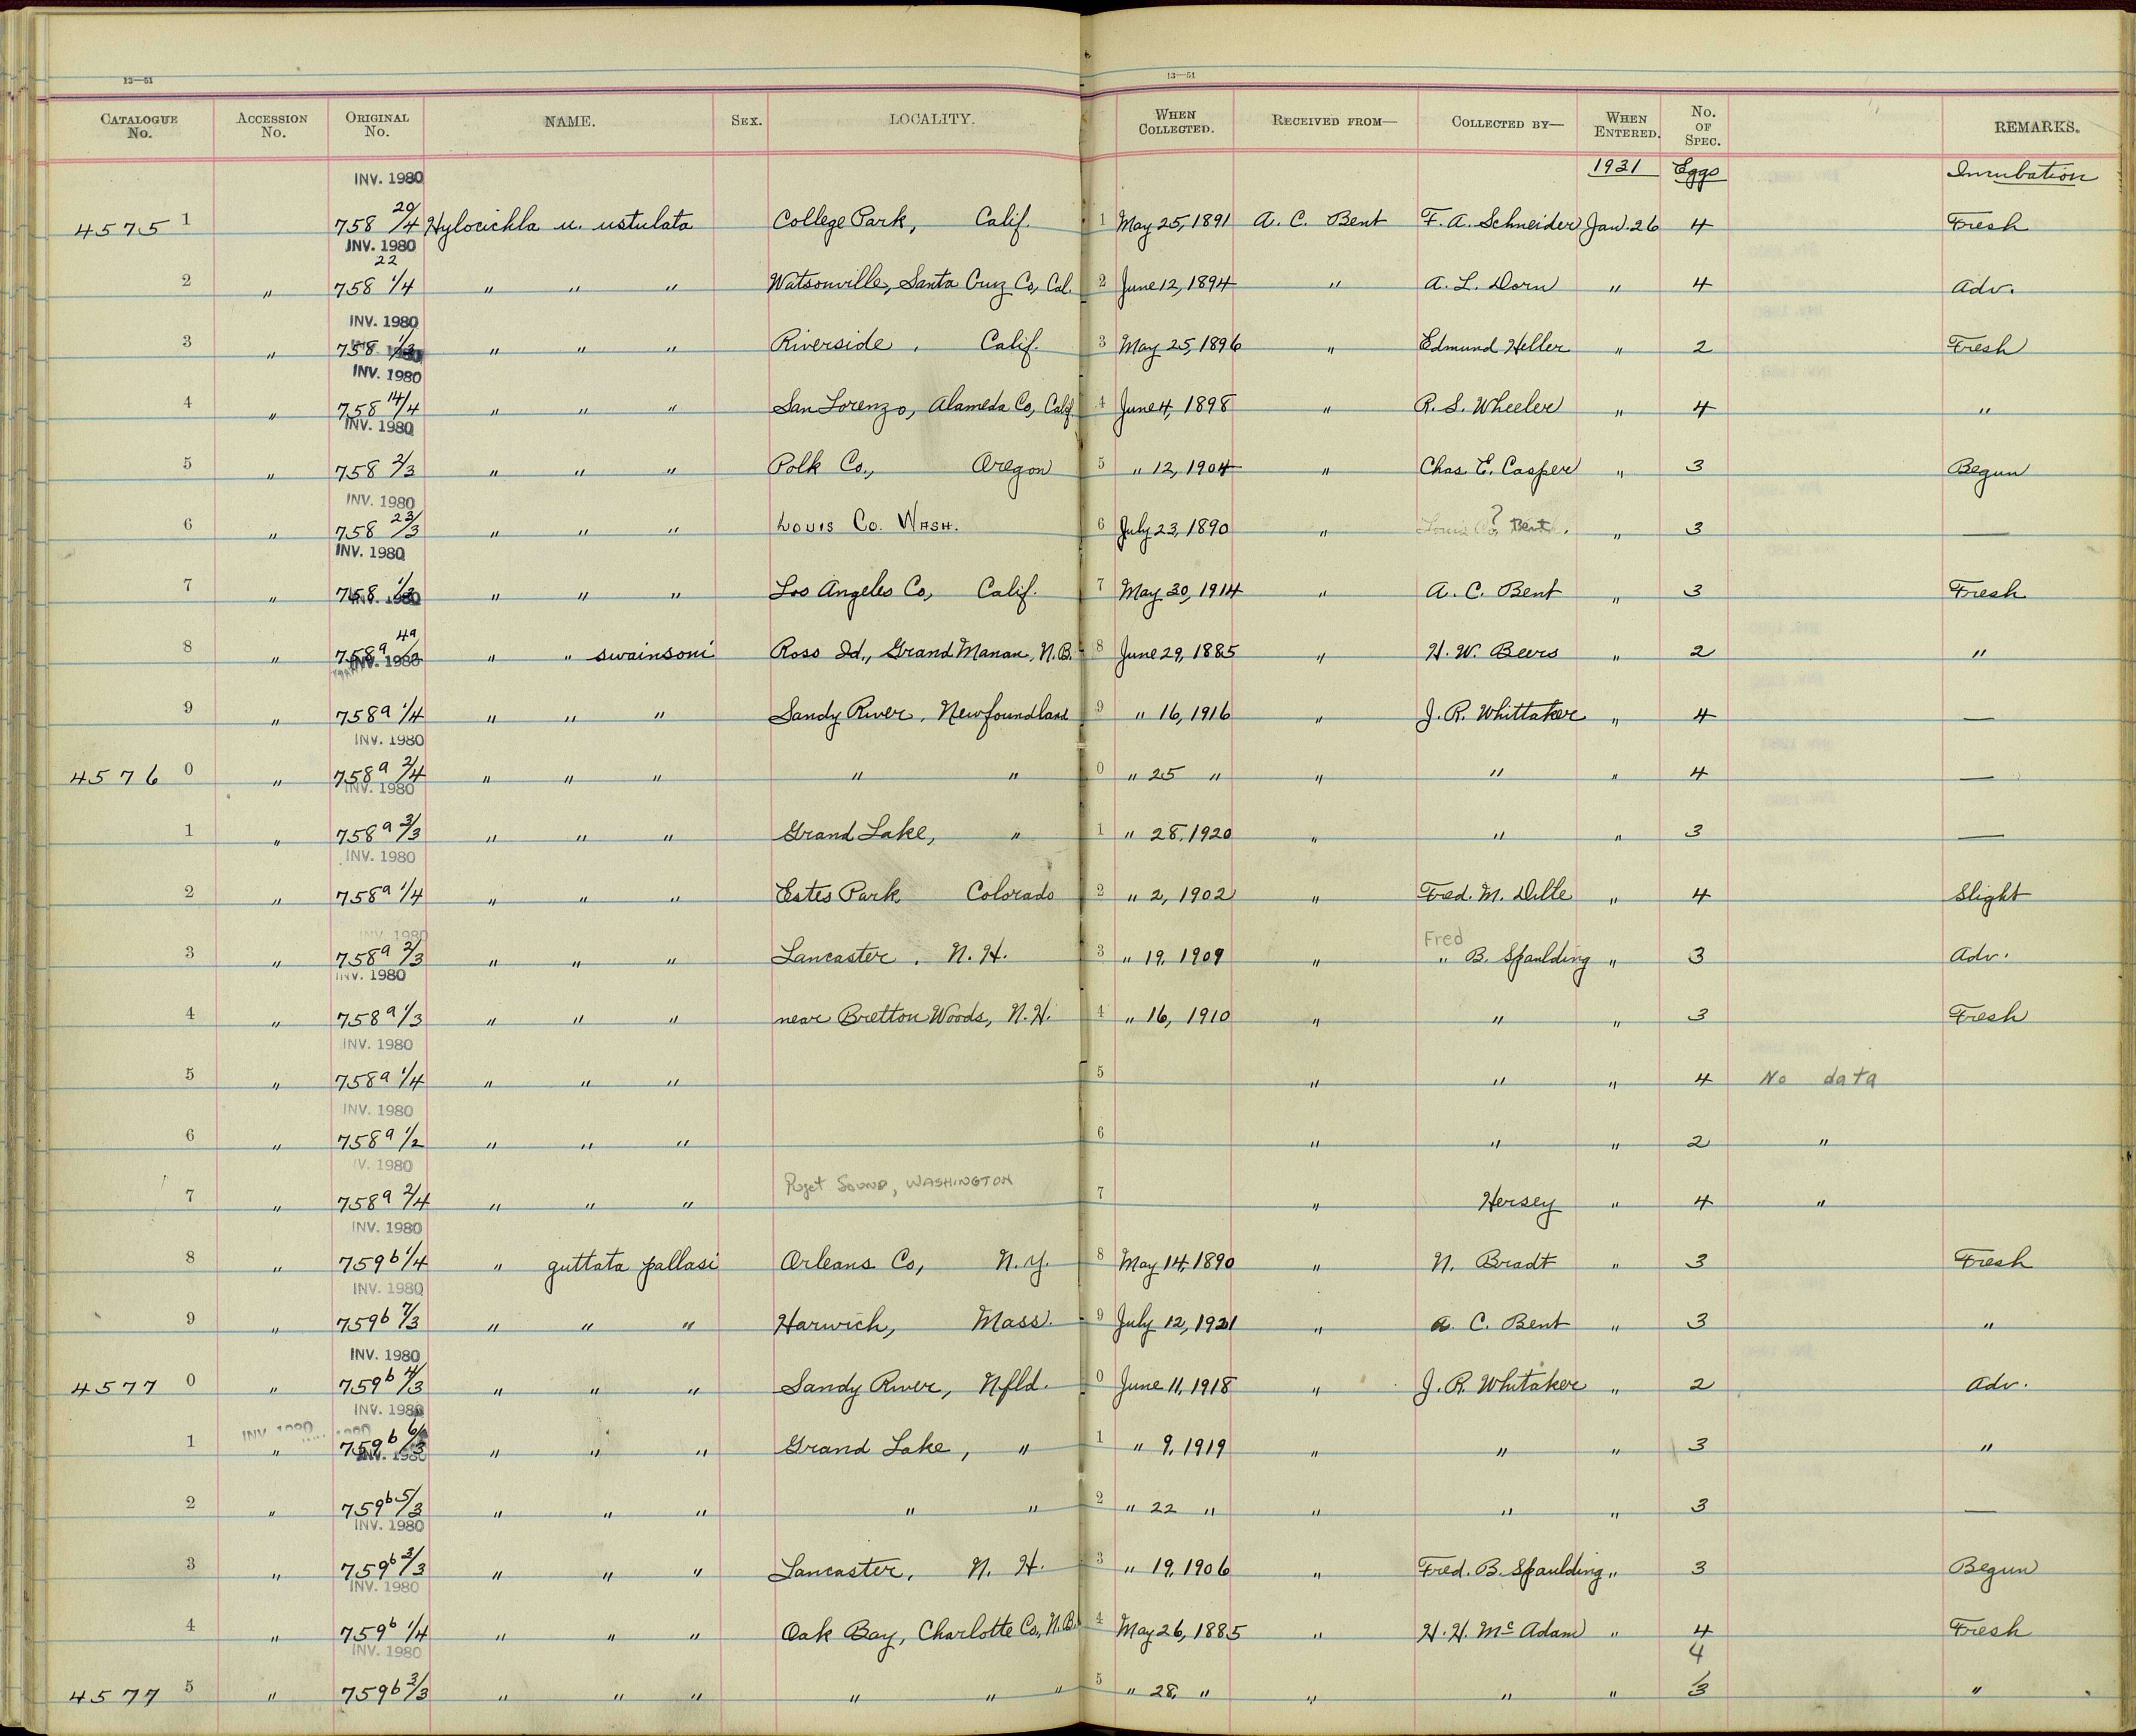 13—51 13—51
CATALOGUE No. ACCESSION No. ORIGINAL No. NAME. SEX. LOCALITY. WHEN COLLECTED. RECEIVED FROM— COLLECTED BY— WHEN ENTERED. No. OF SPEC. REMARKS.
1931 Eggs Incubation
INV. 1980
4575 1 758 20/4 Hylocichla u. ustulata College Park, Calif. 1 May 25, 1891 A. C. Bent F. A. Schneider Jan. 26 4 Fresh
INV. 1980
2 " 758 22 1/4 " " " Watsonville, Santa Cruz Co, Cal. 2 June 12, 1894 " A. L. Dorn " 4 Adv.
INV. 1980
3 " 758 1/3 " " " Riverside, Calif. 3 May 25, 1896 " Edmund Heller " 2 Fresh
INV. 1980
4 " 758 14/4 " " " San Lorenzo, Alameda Co, Calif 4 June 4, 1898 " R. S. Wheeler " 4 "
INV. 1980
5 " 758 2/3 " " " Polk Co., Oregon 5 " 12, 1904 " Chas. E. Casper " 3 Begun
INV. 1980
6 " 758 23/3 " " " Louis Co. Wash. 6 July 23, 1890 " ? Bent " 3 —
INV. 1980
7 " 758 1/3 " " " Los Angeles Co, Calif. 7 May 30, 1914 " A. C. Bent " 3 Fresh
INV. 1980
8 " 758a 4a/2 " " swainsoni Ross Id., Grand Manan, N.B. 8 June 29, 1885 " H. W. Beers " 2 "
INV. 1980
9 " 758a 1/4 " " " Sandy River, Newfoundland 9 " 16, 1916 " J. R. Whittaker " 4 —
INV. 1980
4576 0 " 758a 2/4 " " " " " 0 " 25 " " " " 4 —
INV. 1980
1 " 758a 3/3 " " " Grand Lake, " 1 " 28, 1920 " " " 3 —
INV. 1980
2 " 758a 1/4 " " " Estes Park Colorado 2 " 2, 1902 " Fred. M. Dille " 4 Slight
INV. 1980
Fred
3 " 758a 2/3 " " " Lancaster, N.H. 3 " 19, 1909 " " B. Spaulding " 3 Adv.
INV. 1980
4 " 758a 1/3 " " " near Bretton Woods, N.H. 4 " 16, 1910 " " " 3 Fresh
INV. 1980
5 " 758a 1/4 " " " 5 " " " 4 No data
INV. 1980
6 " 758a 1/2 " " " 6 " " " 2 "
V. 1980
7 " 758a 2/4 " " " Puget Sound, Washington 7 " Hersey " 4 "
INV. 1980
8 " 759b 1/4 " guttata pallasi Orleans Co, N.Y. 8 May 14, 1890 " N. Bradt " 3 Fresh
INV. 1980
9 " 759b 7/3 " " " Harwich, Mass. 9 July 12, 1921 " A. C. Bent " 3 "
INV. 1980
4577 0 " 759b 4/3 " " " Sandy River, Nfld. 0 June 11, 1918 " J. R. Whitaker " 2 Adv.
INV. 1980
INV. 1980
1 " 759b 6/3 " " " Grand Lake, " 1 " 9, 1919 " " " 3 "
INV. 1980
2 " 759b 5/3 " " " " " 2 " 22 " " " " 3 —
INV. 1980
3 " 759b 3/3 " " " Lancaster, N. H. 3 " 19, 1906 " Fred. B. Spaulding " 3 Begun
INV. 1980
4 " 759b 1/4 " " " Oak Bay, Charlotte Co, N.B. 4 May 26, 1885 " H. H. McAdam " 4 Fresh
INV. 1980 4
4577 5 " 759b 3/3 " " " " " " 5 " 28, " " " " 3 "